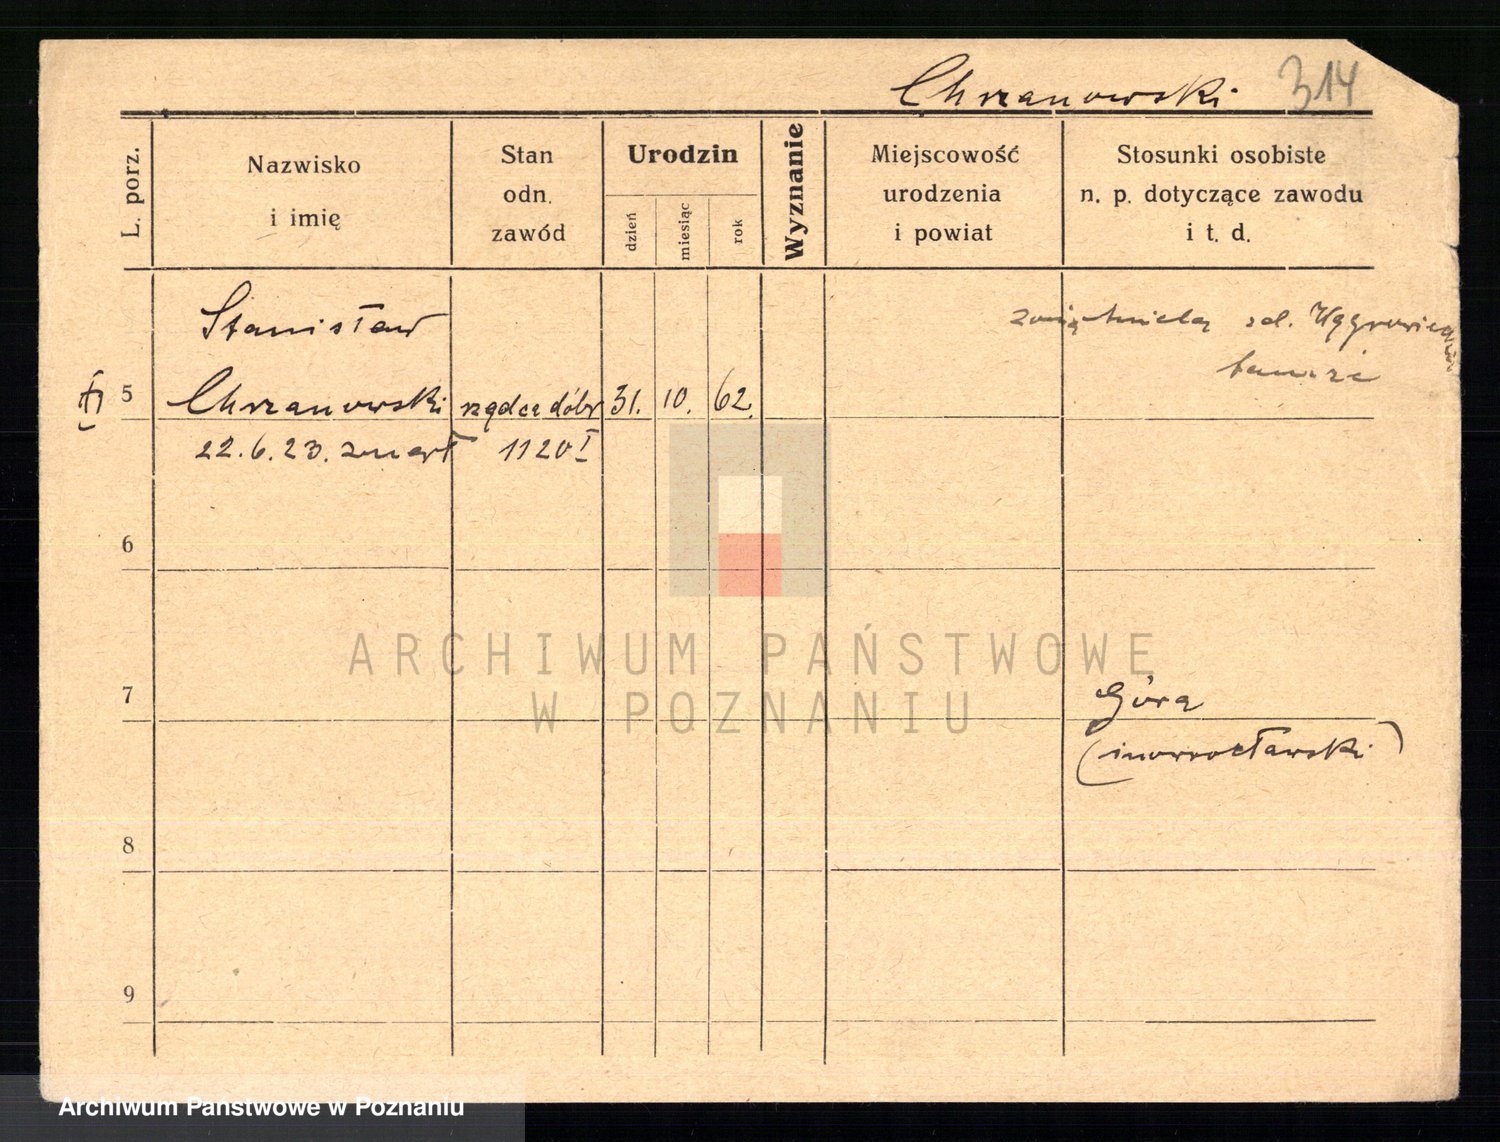 Chrzanowski 314
L. porz.
Nazwisko
i imię
Stan
odn.
zawód
Urodzin
dzień
miesiąc
rok
Wyznanie
Miejscowość
urodzenia
i powiat
Stosunki osobiste
n. p. dotyczące zawodu
i t. d.
Stanisław
5 Chrzanowski rządca dóbr 31. 10. 62.
22.6.23. zmarł 1120 I
6
7
Góra
(inowrocławski)
8
9
ARCHIWUM PAŃSTWOWE
W POZNANIU
Archiwum Państwowe w Poznaniu